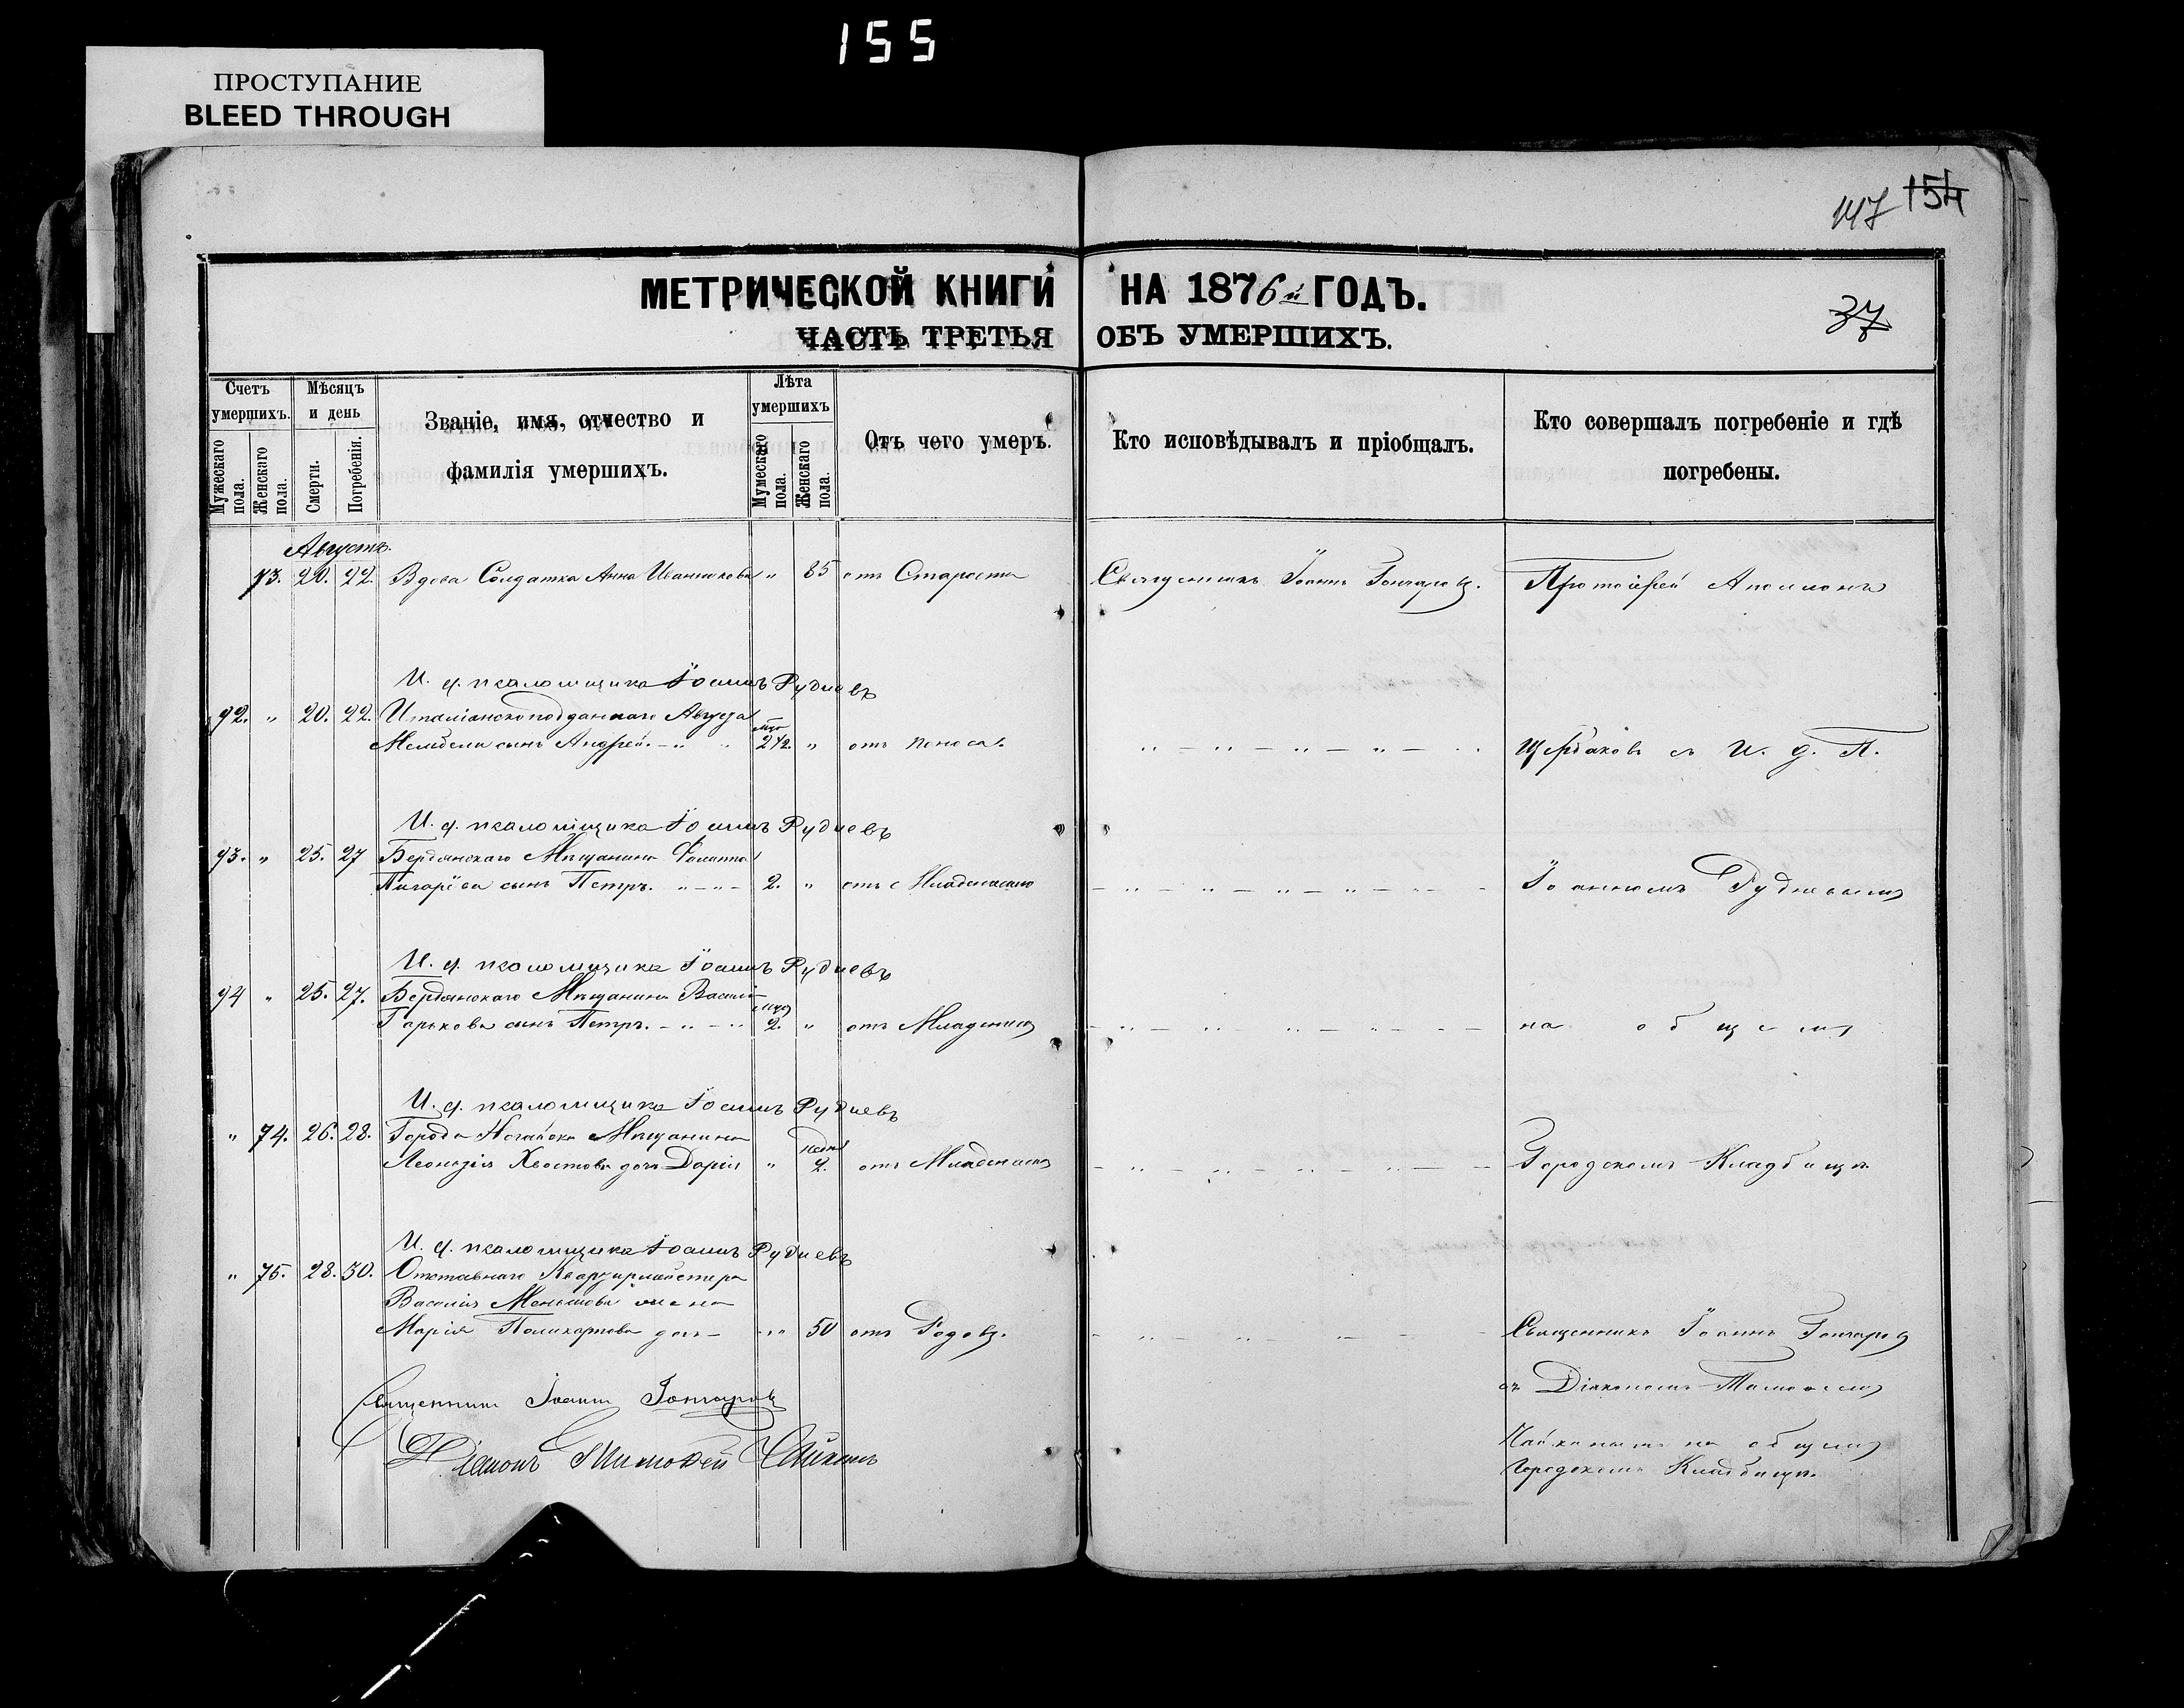 155
ПРОСТУПАНИЕ
BLEED THROUGH
147 154
37
МЕТРИЧЕСКОЙ КНИГИ НА 1876й ГОДЪ.
ЧАСТЬ ТРЕТЬЯ ОБЪ УМЕРШИХЪ.
Счетъ умершихъ.
Мужескаго пола.
Женскаго пола.
Мѣсяцъ и день
Смерти.
Погребенія.
Званіе, имя, отчество и
фамилія умершихъ.
Лѣта умершихъ
Мужескаго пола.
Женскаго пола.
Отъ чего умеръ.
Кто исповѣдывалъ и пріобщалъ.
Кто совершалъ погребеніе и гдѣ
погребены.
Августъ.
73. 20. 22. Вдова Солдатка Анна Иванникова " 85 отъ Старости Священникъ Іоаннъ Гончаровъ. Протоіерей Аполлонъ
И. д. псаломщика Іоаннъ Рудневъ
92. " 20. 22. Италіанскоподданнаго Августа
сынъ Андрей. 2 1/2. " отъ поноса. Щербаковъ съ И. д. П.
И. д. псаломщика Іоаннъ Рудневъ
93. " 25. 27 Бердянскаго Мѣщанина Филиппа
сынъ Петръ. 2. " отъ Младенческо Іоанномъ Рудневымъ
И. д. псаломщика Іоаннъ Рудневъ
94 " 25. 27. Бердянскаго Мѣщанина Василія
Горькова сынъ Петръ. 2. " отъ Младенческ на общемъ
И. д. псаломщика Іоаннъ Рудневъ
" 74. 26. 28. Города Ногайска Мѣщанина
Леонтія Хвостова дочь Дарія " 2. отъ Младенческ Городскомъ Кладбищѣ.
И. д. псаломщика Іоаннъ Рудневъ
" 75. 28. 30. Отставнаго Квартирмейстера
Василія Меньшова жена
Марія Поликарпова дочь 50 отъ Родовъ. Священникъ Іоаннъ Гончаровъ
съ Діакономъ
на общемъ
Городскомъ Кладбищѣ.
Священникъ Іоаннъ Гончаровъ
Діаконъ Тимофей